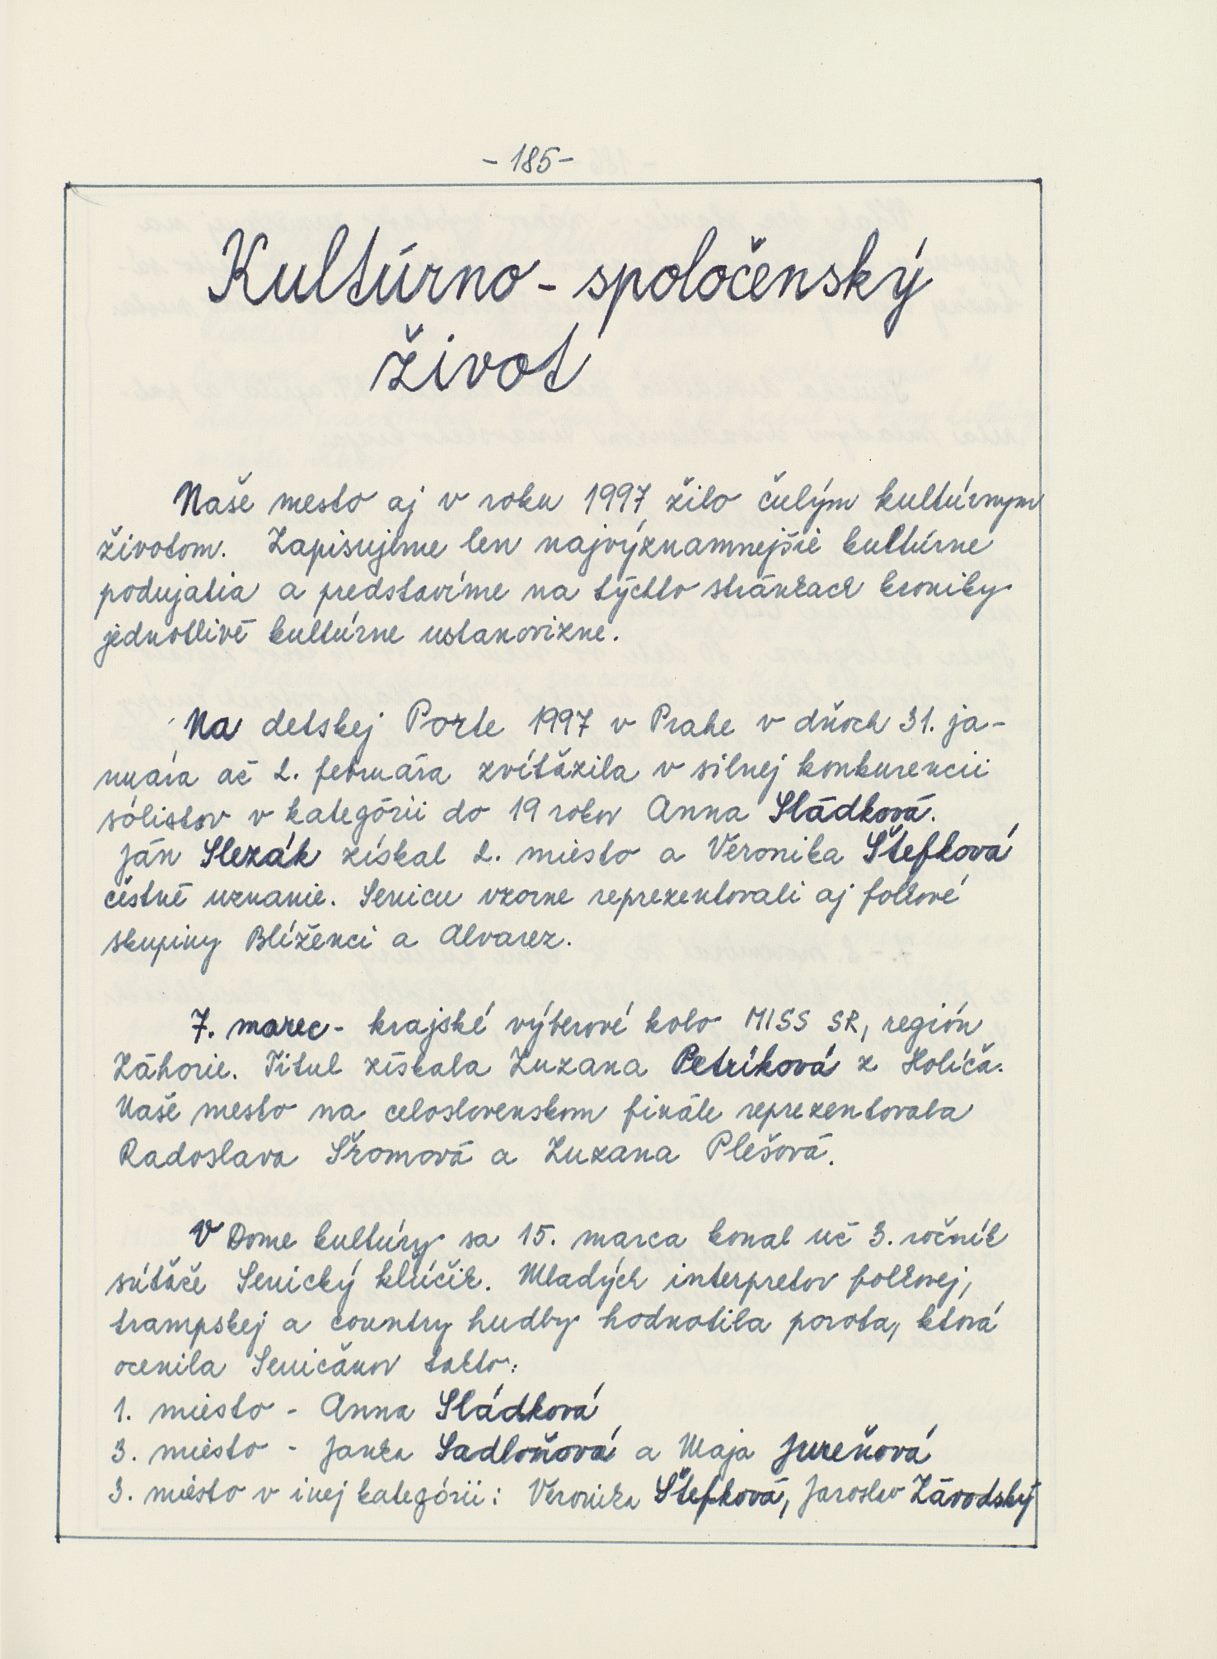 - 185 -
Kultúrno - spoločenský
život
Naše mesto aj v roku 1997 žilo čulým kultúrnym
životom. Zapisujeme len najvýznamnejšie kultúrne
podujatia a predstavíme na týchto stránkach kroniky
jednotlivé kultúrne ustanovizne.
Na detskej Porte 1997 v Prahe v dňoch 31. ja-
nuára až 2. februára zvíťazila v silnej konkurencii
sólistov v kategórii do 19 rokov Anna Sládková.
Ján Slezák získal 2. miesto a Veronika Štefková
čestné uznanie. Senicu vzorne reprezentovali aj folkové
skupiny Blíženci a Alvarez.
7. marec - krajské výberové kolo MISS SR, región
Záhorie. Titul získala Zuzana Petríková z Holíča.
Naše mesto na celoslovenskom finále reprezentovala
Radoslava Sřomová a Zuzana Plešová.
V Dome kultúry sa 15. marca konal už 3. ročník
súťaže Senický kľúčik. Mladých interpretov folkovej,
trampskej a country hudby hodnotila porota, ktorá
ocenila Seničanov takto:
1. miesto - Anna Sládková
3. miesto - Janka Sadloňová a Maja Jureňová
3. miesto v inej kategórii: Veronika Štefková, Jaroslav Závodský